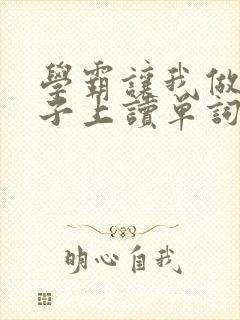 學霸讓我做
子上讀單詞
明心自我